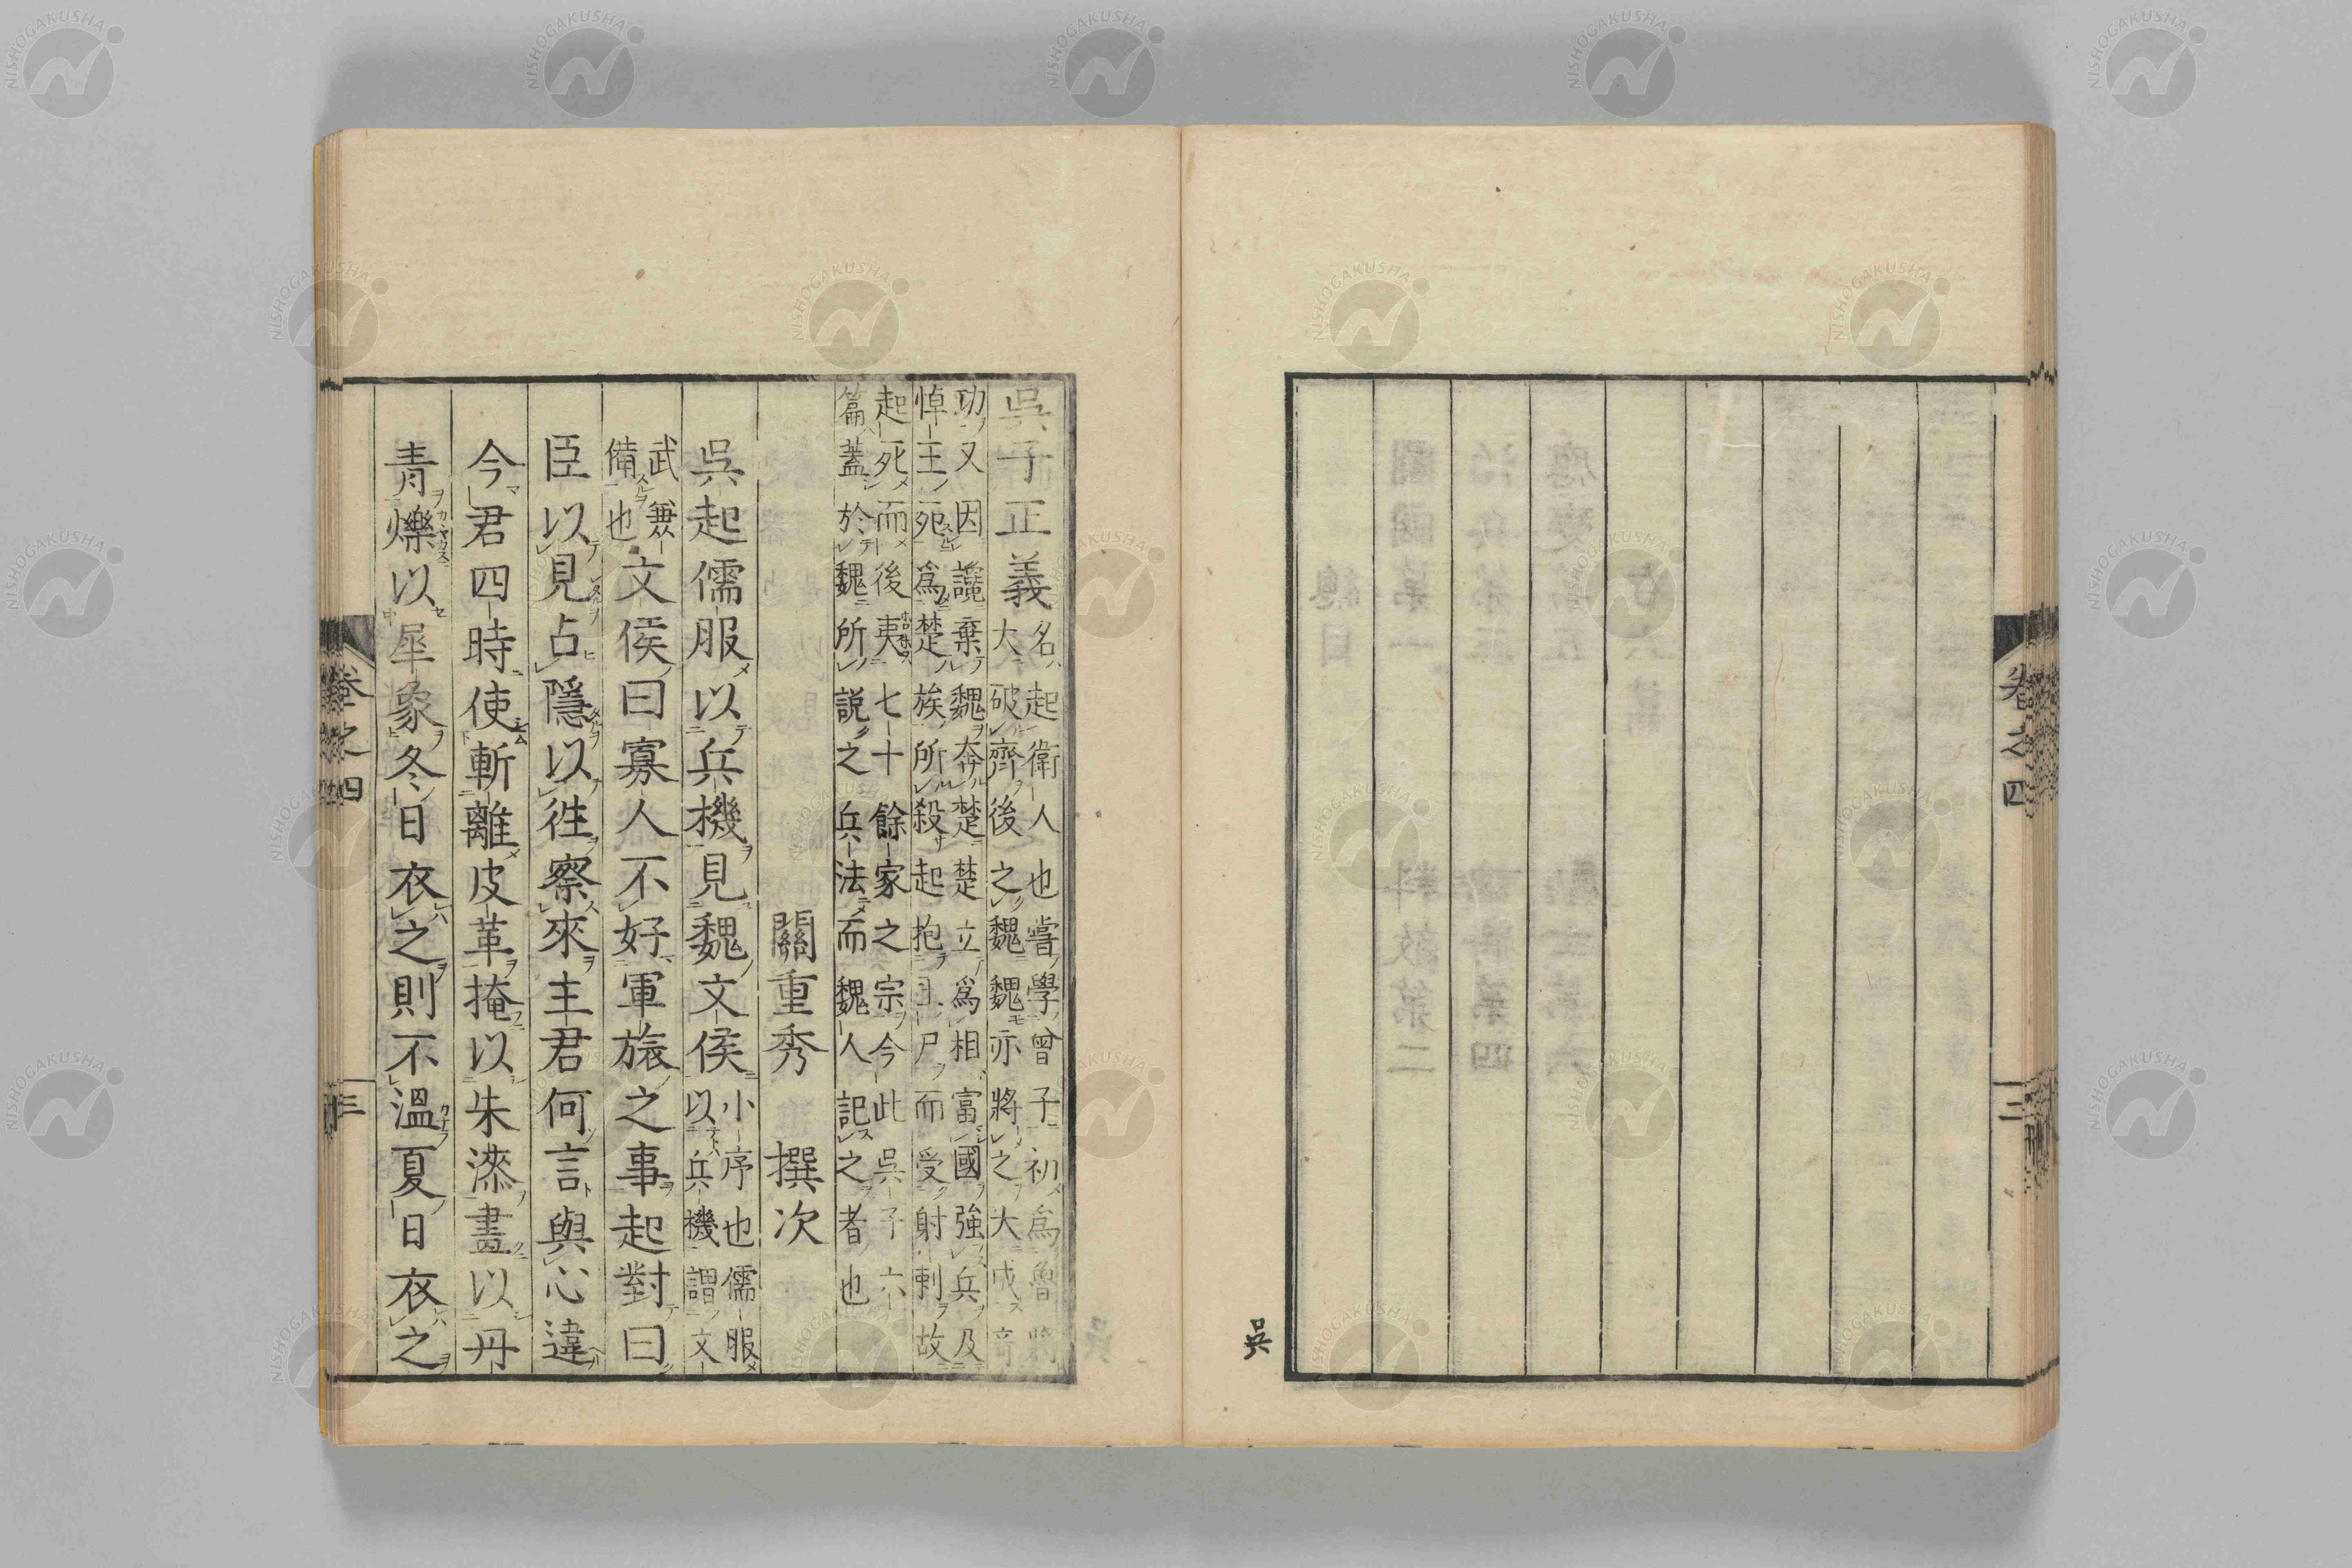 卷之四
二
吳
吳子正義
名起衛人也嘗學曾子初爲魯將
大破齊後之魏魏亦將之大成
功又因讒棄魏奔楚楚立爲相富國強兵及
悼王死爲楚族所殺起抱王尸而受射刺故
起死而後夷七十餘家之宗今此吳子六
篇蓋於魏所說之兵法而魏人記之者也
關重秀 撰次
吳起儒服以兵機見魏文侯
小序也儒服
以兵機謂文
武兼
備也
文侯曰寡人不好軍旅之事起對曰
臣以見占隱以徃察來主君何言與心違
今君四時使斬離皮革掩以朱漆畫以丹
青爍以犀象冬日衣之則不溫夏日衣之
卷之四
三
NISHOGAKUSHA